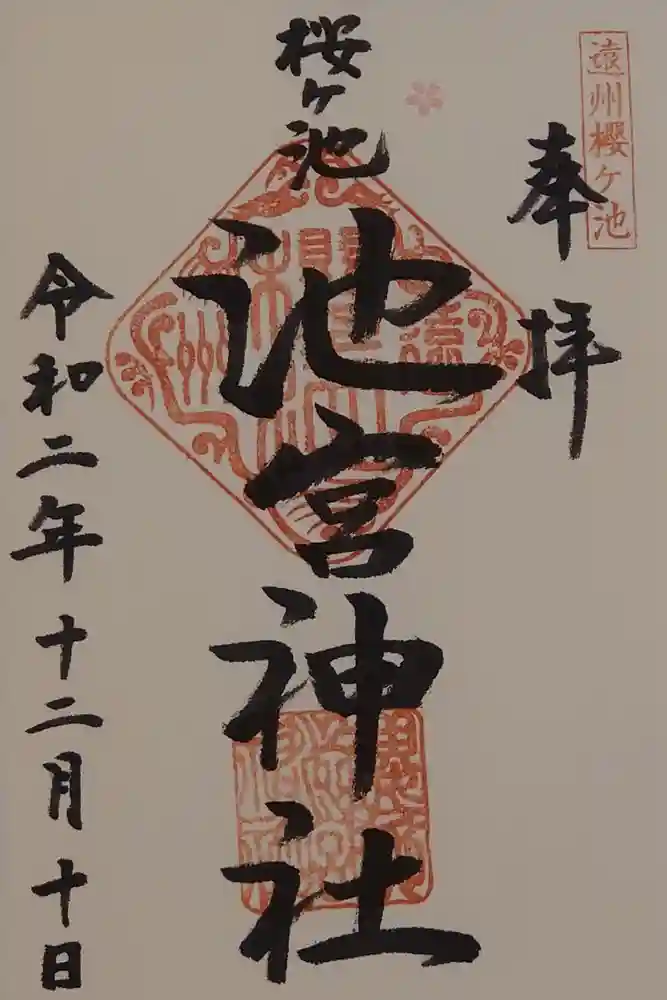 遠州櫻ケ池
奉拝
桜ヶ池
池宮神社
令和二年十二月十日